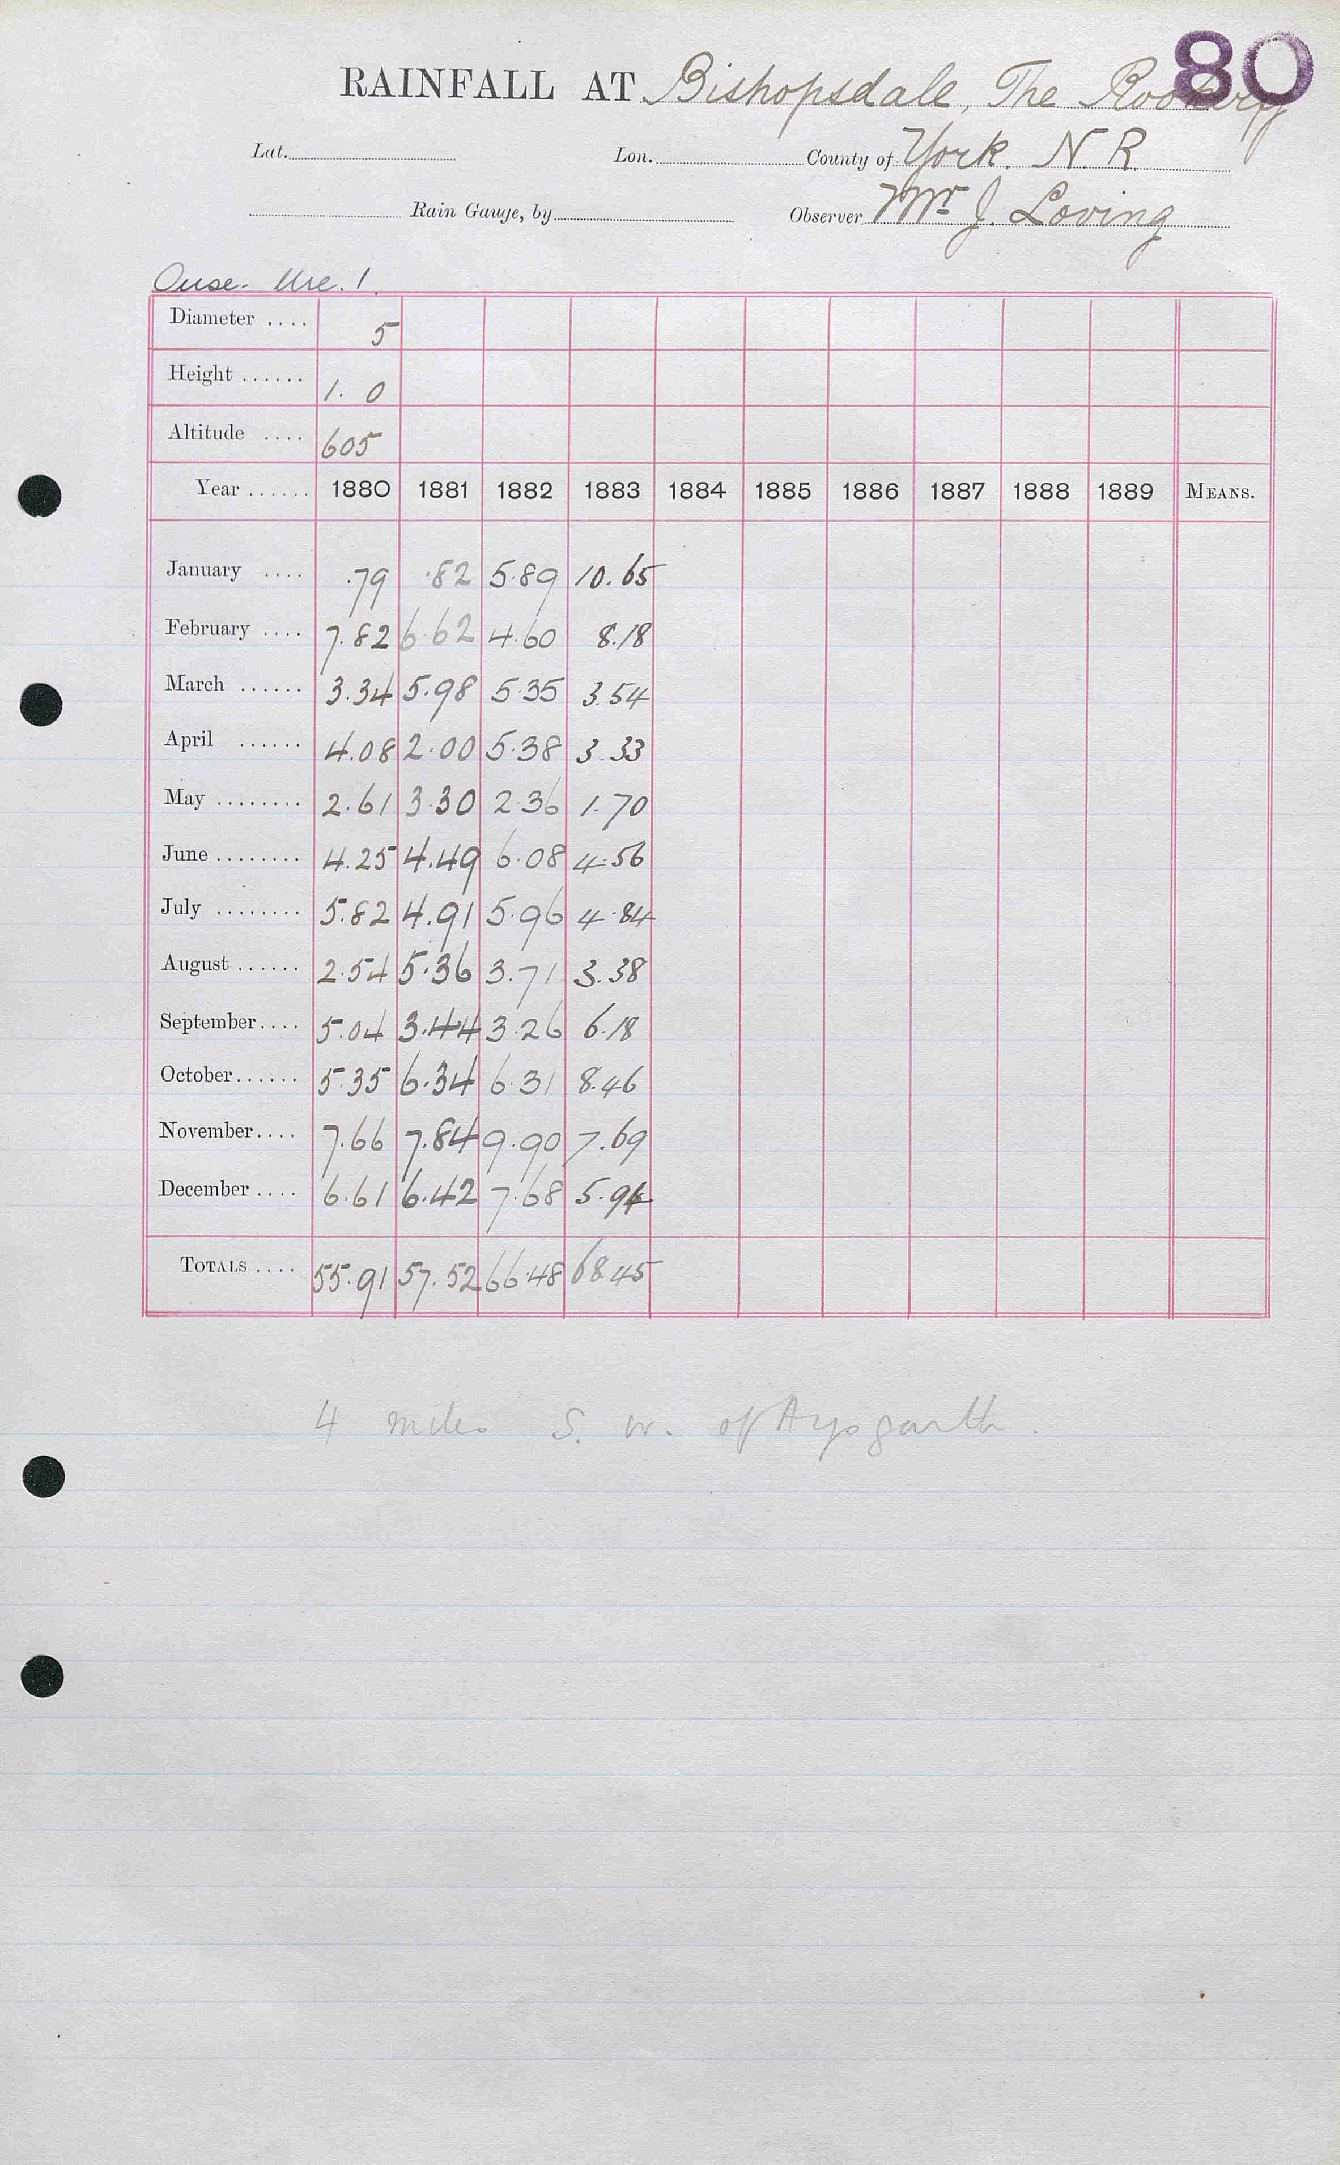 80
RAINFALL AT Bishopsdale, The Rookery
Lat. Lon. County of York. N. R.
Rain Gauge, by Observer Mr. J. Loving
Ouse. Ure. 1.
Diameter .... 5
Height ...... 1. 0
Altitude .... 605
Year ...... 1880 1881 1882 1883 1884 1885 1886 1887 1888 1889 MEANS.
January .... .79 .82 5.89 10.65
February .... 7.82 6.62 4.60 8.18
March ...... 3.34 5.98 5.35 3.54
April ...... 4.08 2.00 5.38 3.33
May ........ 2.61 3.30 2.36 1.70
June ........ 4.25 4.49 6.08 4.56
July ........ 5.82 4.91 5.96 4.84
August ...... 2.54 5.36 3.71 3.38
September.... 5.04 3.44 3.26 6.18
October...... 5.35 6.34 6.31 8.46
November.... 7.66 7.84 9.90 7.69
December .... 6.61 6.42 7.68 5.94
TOTALS .... 55.91 57.52 66.48 68.45
4 miles S. W. of Aysgarth.